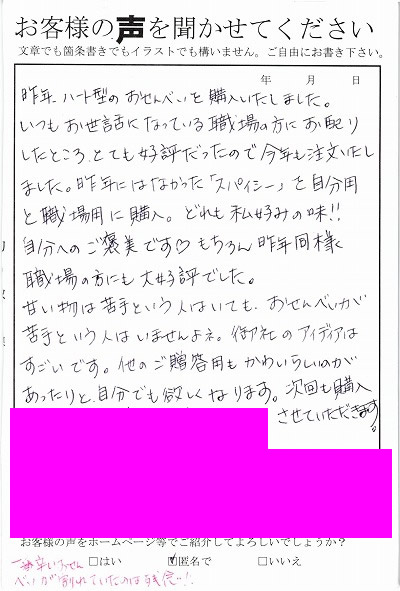 お客様の声を聞かせてください
文章でも箇条書きでもイラストでも構いません。ご自由にお書き下さい。
年 月 日
昨年、ハート型のおせんべいを購入いたしました。
いつもお世話になっている職場の方にお配り
したところ、とても好評だったので今年も注文いたし
ました。昨年にはなかった「スパイシー」を自分用
と職場用に購入。どれも私好みの味!!
自分へのご褒美です♡もちろん昨年同様
職場の方にも大好評でした。
甘い物は苦手という人はいても、おせんべいが
苦手という人はいませんよネ。御社のアイディアは
すごいです。他のご贈答用もかわいらしいのが
あったりと、自分でも欲しくなります。次回も購入
させていただきます。
お客様の声をホームページ等でご紹介してよろしいでしょうか?
□はい ☑匿名で □いいえ
一番辛いおせん
べいが割れていたのは残念…!